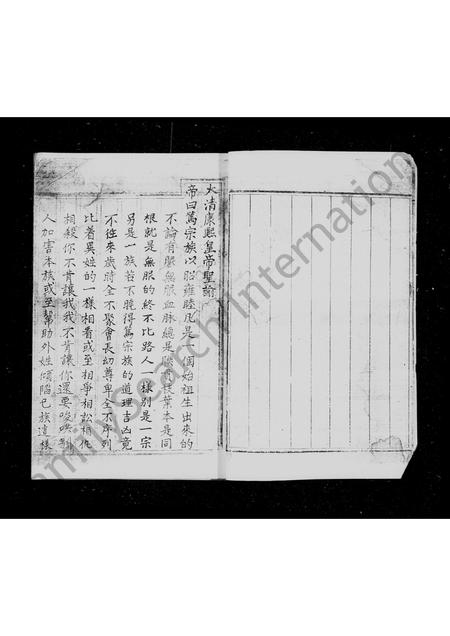 大清康熙皇帝聖諭
帝曰篤宗族以昭雍睦凡是一個始祖生出來的
不論有服無服血脉總是 枝葉本是同
根就是無服的終不比路人一樣別是一宗
另是一族若不曉得篤宗族的道理吉凶竟
不往來歲時全不聚會長幼尊卑全不序列
比着異姓的一樣相看或至相爭相訟相仇
相殺你不肯讓我我不肯讓你還要唆哄
人加害本族或至幫助外姓傾陷己族這樣
FamilySearch International